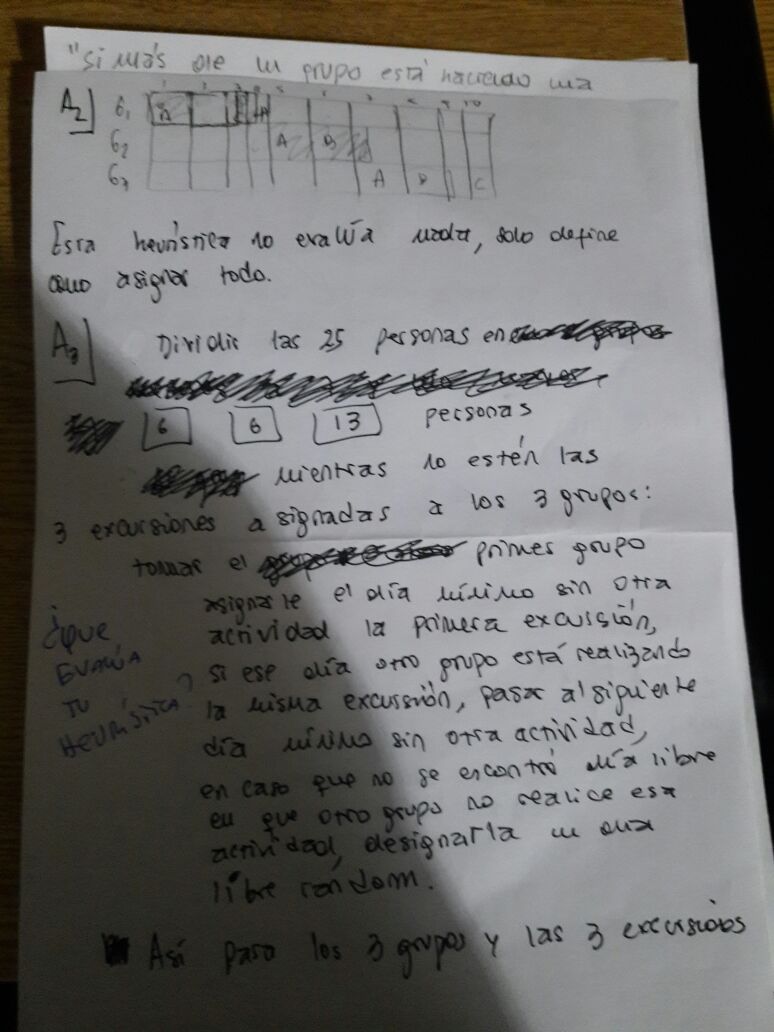 "Si más de un grupo está haciendo una
A2]
1 2 3 4 5 6 7 8 9 10
G1 A A
G2 A B
G3 A B C
Esta heurística no evalúa nada, solo define
como asignar todo.
A3] Dividir las 25 personas en
6 6 13 personas
mientras no estén las
3 excursiones asignadas a los 3 grupos:
tomar el primer grupo
asignarle el día mínimo sin otra
actividad la primera excursión,
si ese día otro grupo está realizando
la misma excursión, pasar al siguiente
día mínimo sin otra actividad,
en caso que no se encontró día libre
en que otro grupo no realice esa
actividad, designarla un día
libre random.
Así para los 3 grupos y las 3 excursiones
¿que
EVALÚA
TU
HEURÍSTICA?